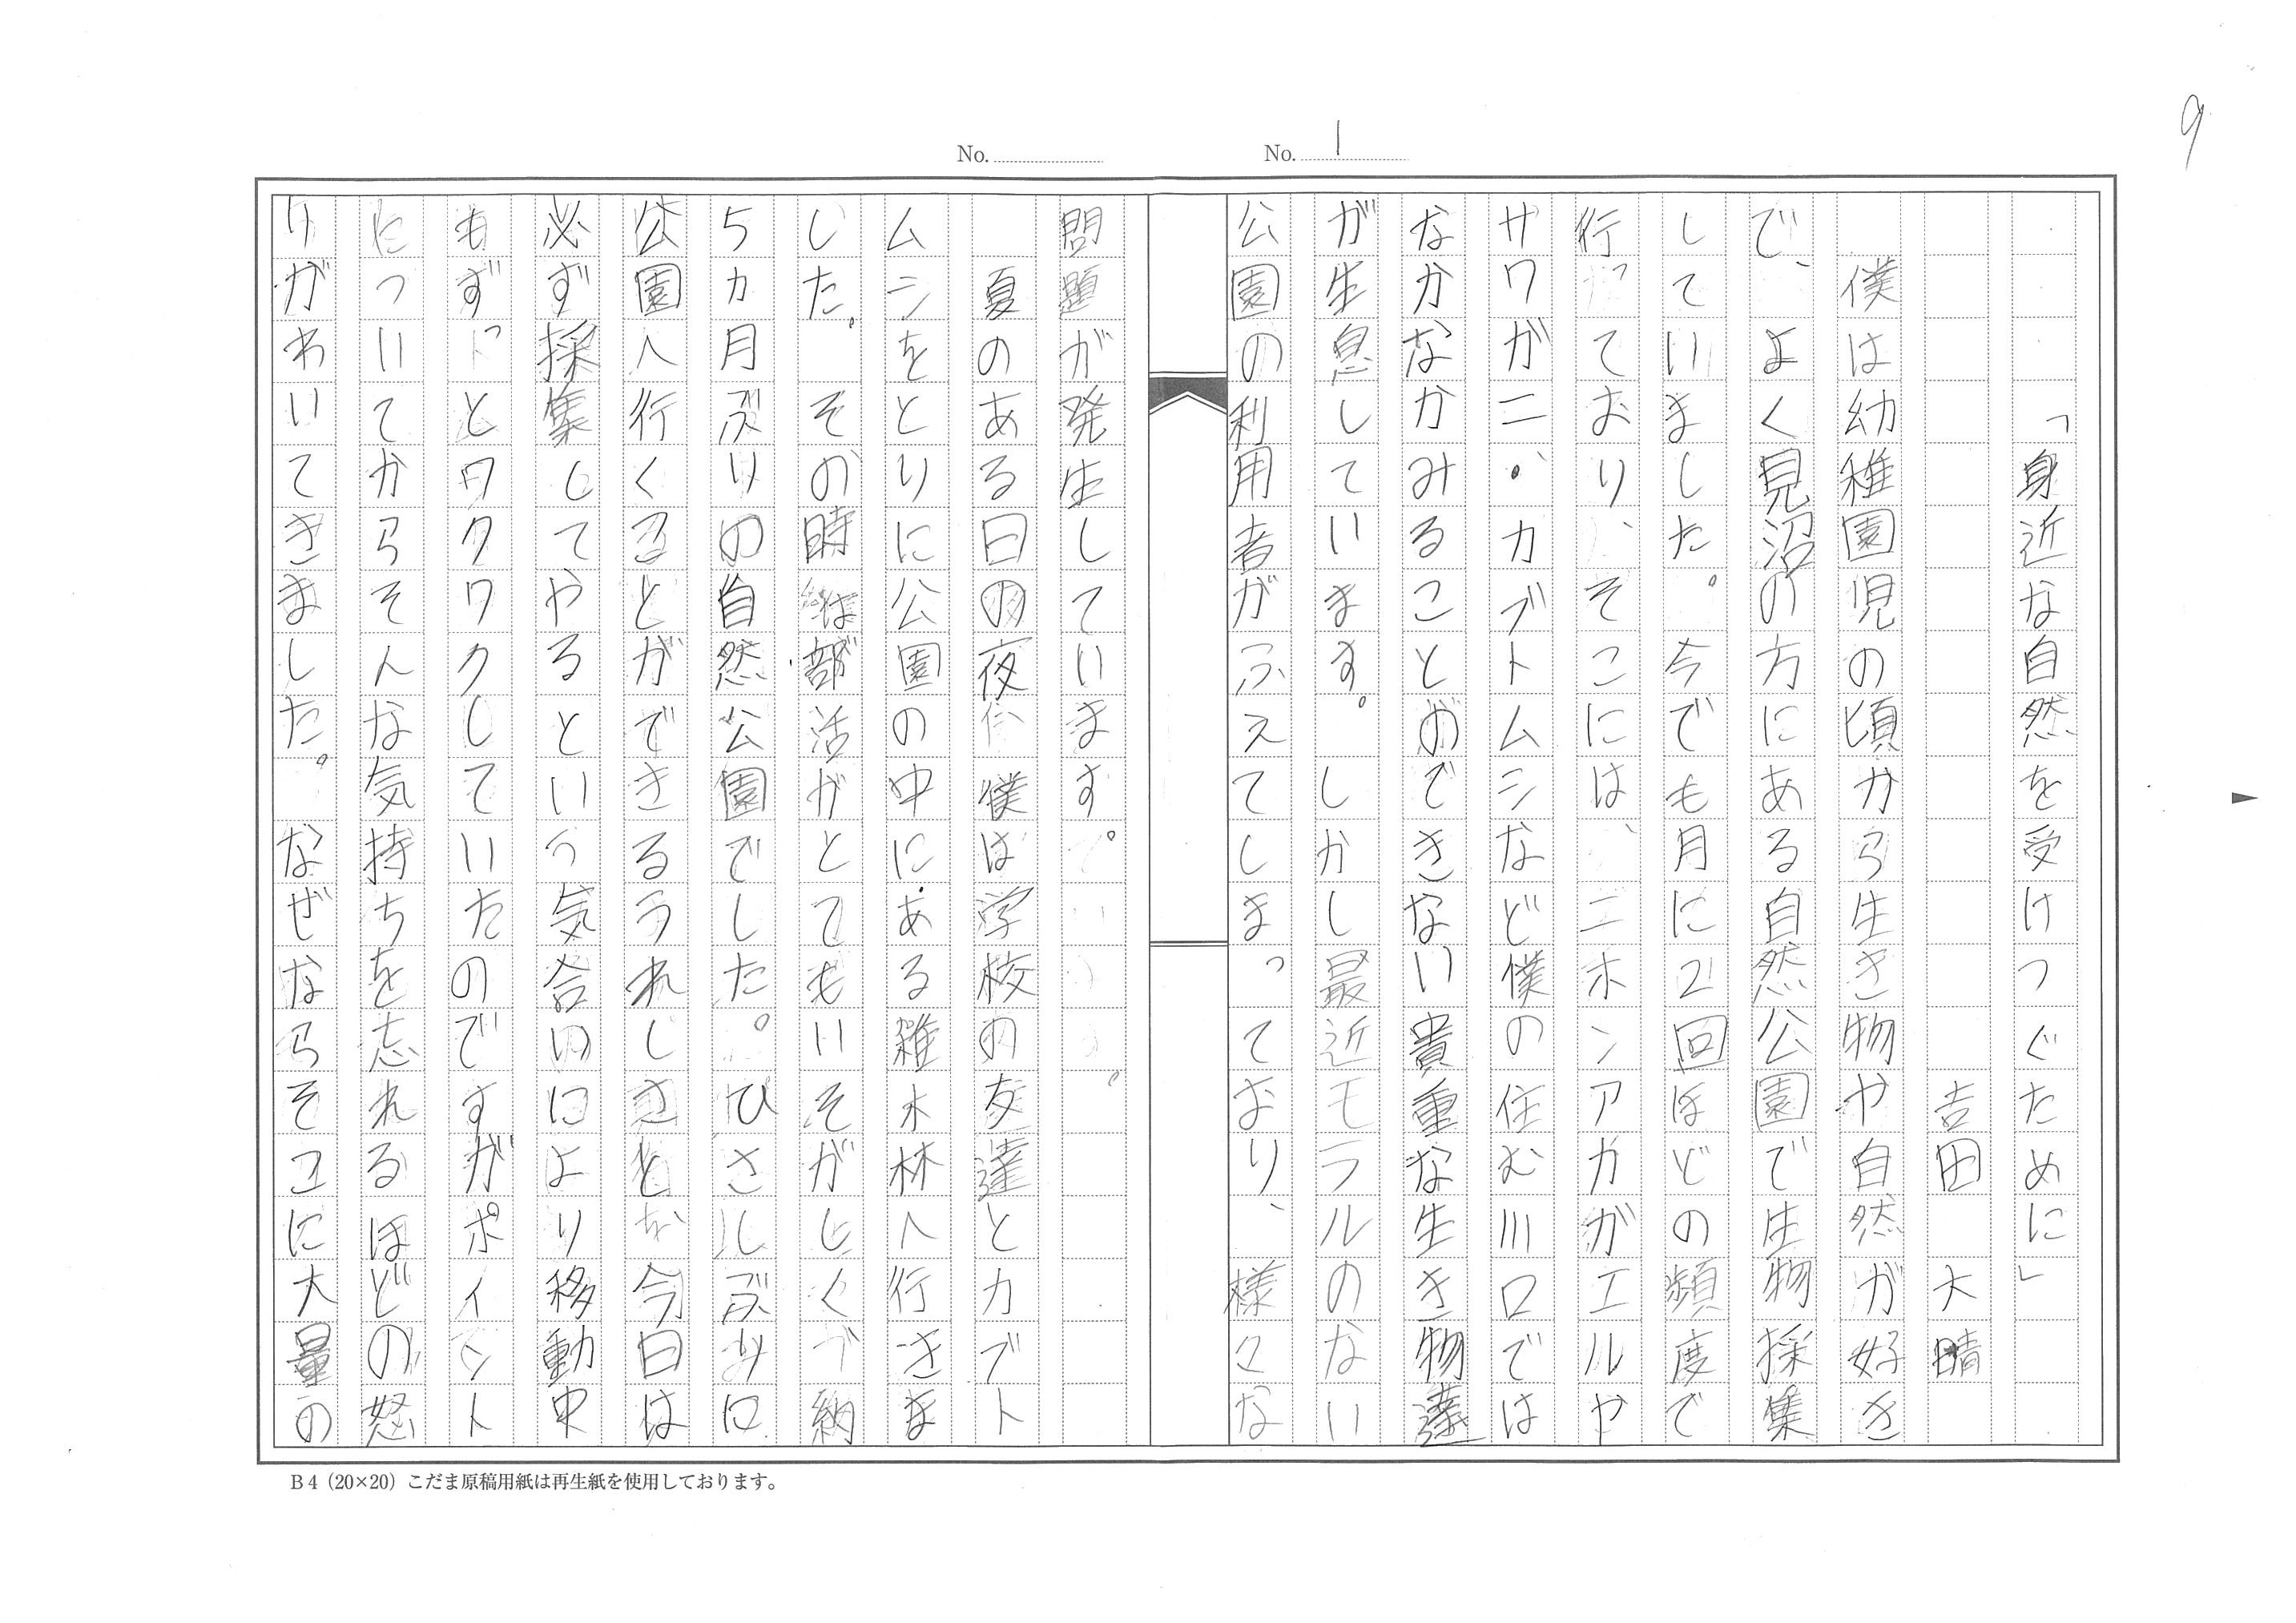 9
No. 1
No.
「身近な自然を受けつぐために」
吉田 大晴
僕は幼稚園児の頃から生き物や自然が好き
で、よく見沼の方にある自然公園で生物採集
していました。今でも月に2回ほどの頻度で
行っており、そこには、ニホンアカガエルや
サワガニ・カブトムシなど僕の住む川口では
なかなかみることのできない貴重な生き物達
が生息しています。しかし最近モラルのない
公園の利用者がふえてしまっており、様々な
問題が発生しています。
夏のある日の夜僕は学校の友達とカブト
ムシをとりに公園の中にある雑木林へ行きま
した。その時は部活がとてもいそがしく、納
5カ月ぶりの自然公園でした。ひさしぶりに
公園へ行くることができるうれしさと今日は
必ず採集してやるという気合いにより移動中
もずっとワクワクしていたのですがポイント
についてからそんな気持ちを忘れるほどの怒
りがわいてきました。なぜならそこに大量の
B4(20×20)こだま原稿用紙は再生紙を使用しております。